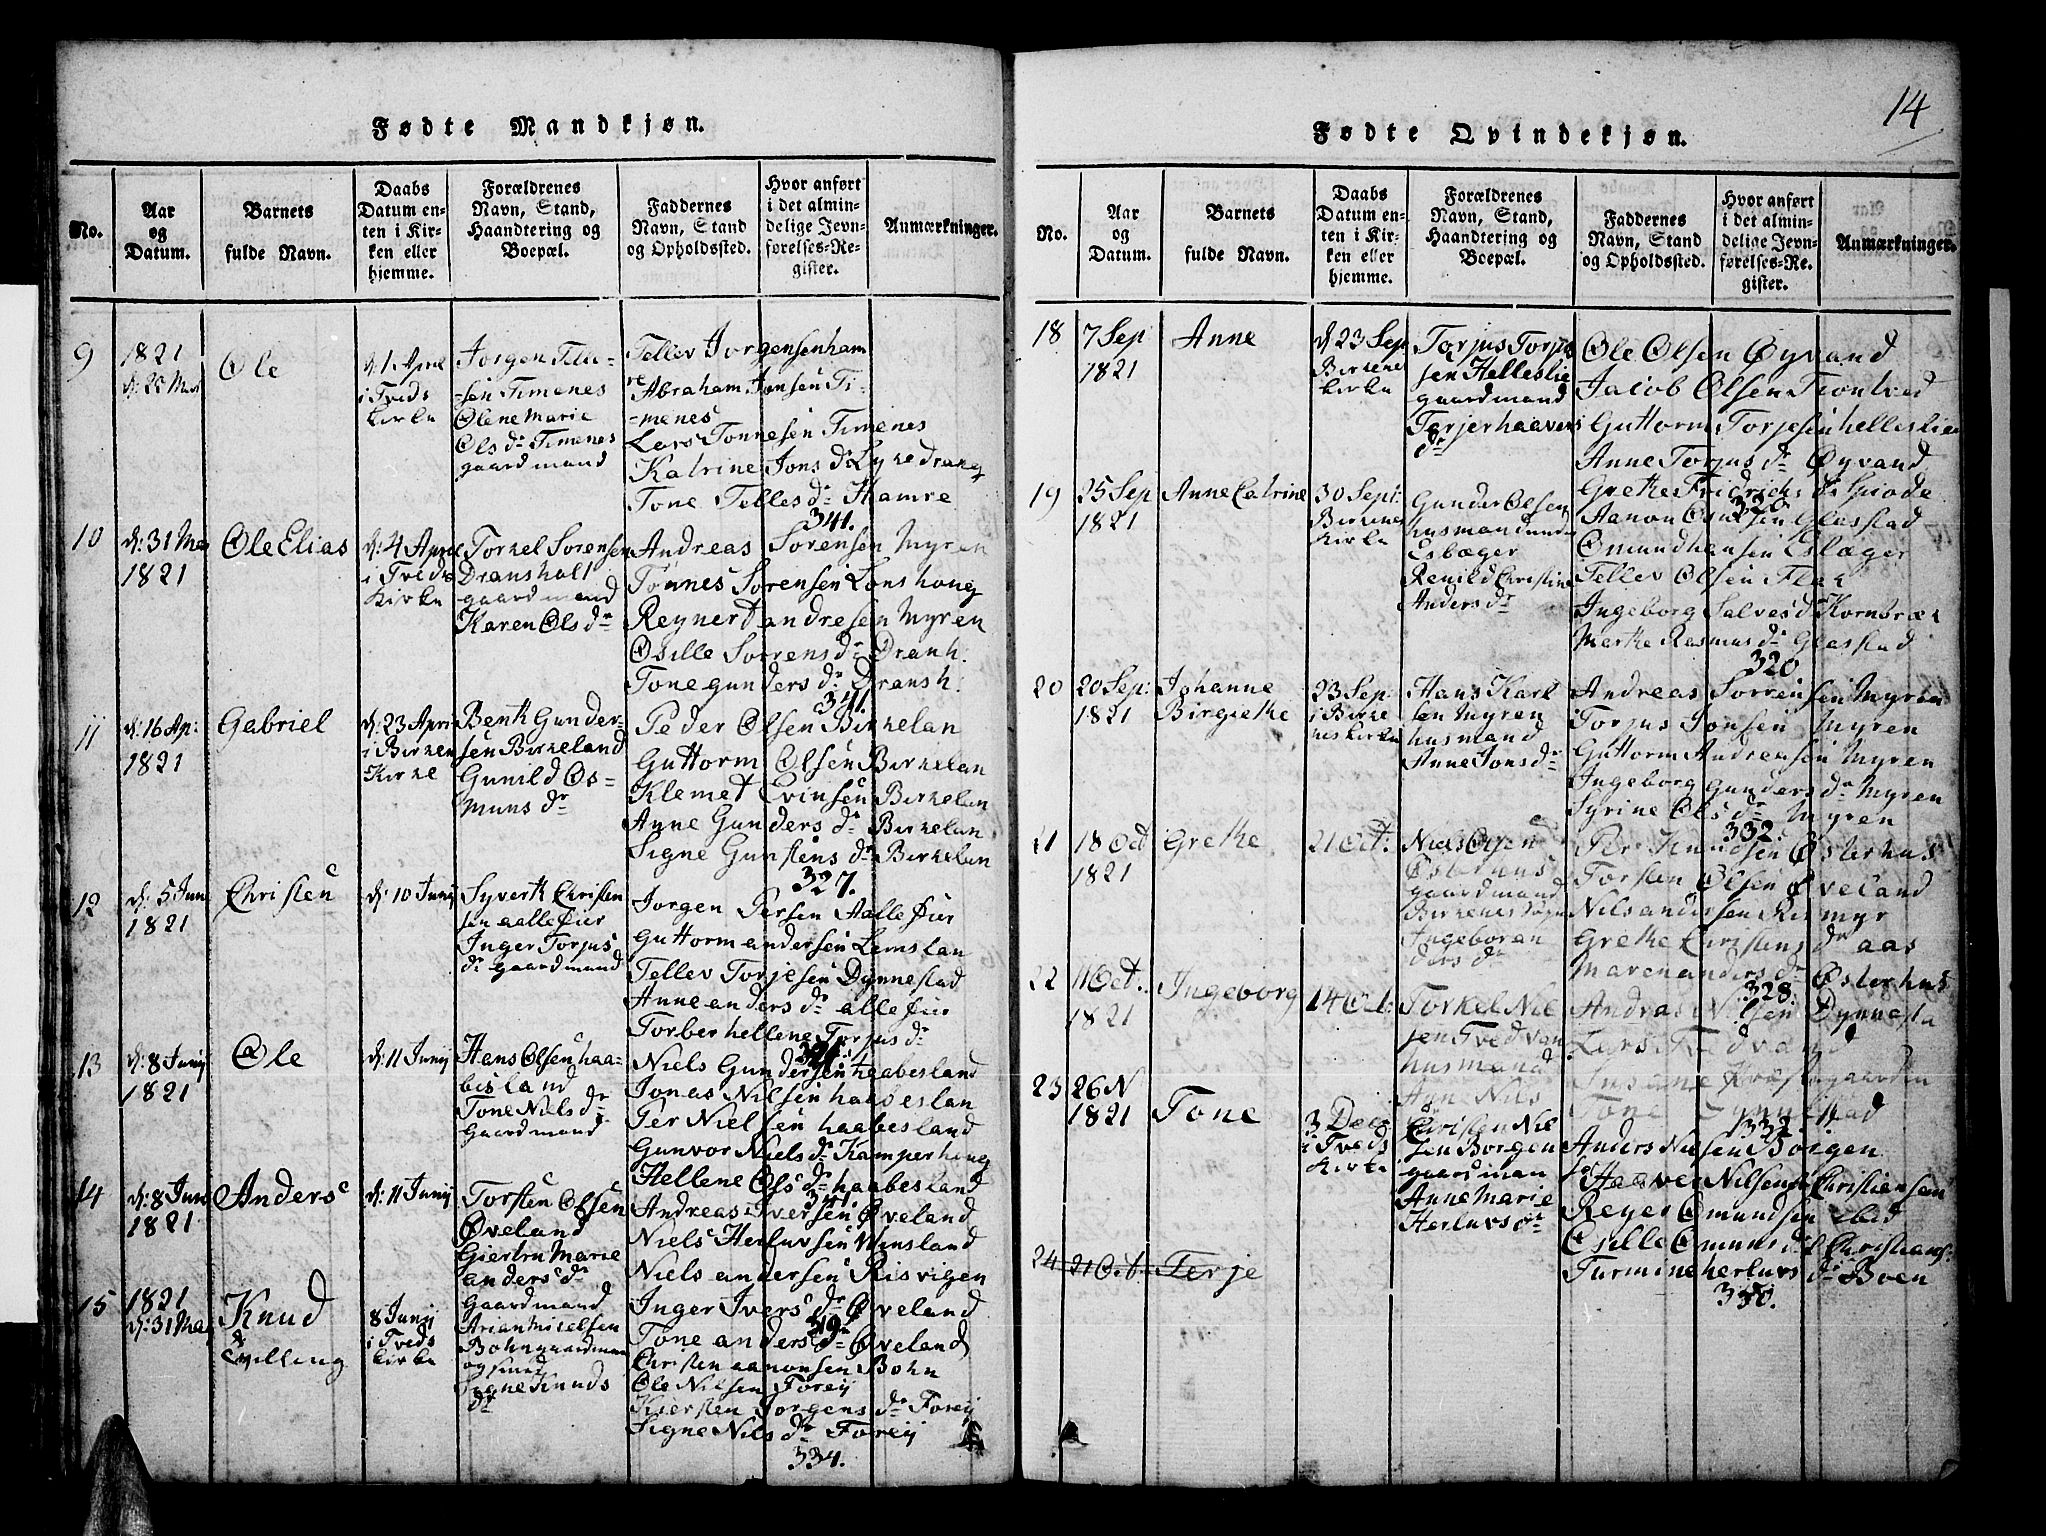 14
Fødte Mandkjøn.
No.
Aar
og
Datum.
Barnets
fulde Navn.
Daabs
Datum en-
ten i Kir-
ken eller
hjemme.
Forældrenes
Navn, Stand,
Haandtering og
Boepæl.
Faddernes
Navn, Stand
og Opholdssted.
Hvor anført
i det almin-
delige Jevn-
førelses-Re-
gister.
Anmærkninger.
9
1821
Ole
d: 1 April
i Tveds
kirke
Jørgen
Timenes
Olene Marie
Ols dr Timenes
gaardmand
Tellev Jørgensen ham
re Abraham Jonsen Ti-
-menes
Lars Tønnesen Timenes
Katrine Jons dr
Tone Telles dr Hamre
341.
10
d: 31 Ma
1821
Ole Elias
d: 4 April
i Tveds
Kirke
Torkel Sørensen
Dransholt
gaardmand
Karen Ols dr
Andreas Sørensen Myren
Tønnes Sørensen Lonshoug
Reynert andresen Myren
Osille Sørrens dr Dranh:
Tone gunders dr Dransh:
341.
11
d: 16 Ap:
1821
Gabriel
d: 23 Apri
i Birken
Kirke
Benth Gunder-
sen Birkeland
Gunild Os-
muns dr
Peder Olsen Birkelan
Guttorm Olsen Birkelan
Klemet Evinsen Birkelan
Anne Gunders dr Birkelan
Signe Gunstens dr Birkelan
327.
12
d: 5 Jun
1821
Christen
d: 10 Junij
Syverth Christen
sen aallefier
Inger Torjus
dr gaardmand
Jørgen Persen Aallefier
Guttorm andersen Lemslan
Tellev Torjesen Dønnestad
Anne anders dr allefier
Torber hellene Torjus dr
13
d: 8 Junij
1821
Ole
d: 11 Junij
Hans Olsen haa-
bisland
Tone Niels dr
gaardmand
Niels Gundersen haabesland
Jonas Nilsen haabeslan
Per Nielsen haabesland
Gunvor Niels dr Kamperhoug
Hellene Ols dr haabesland
14
d: 8 Jun
1821
Anders
d: 11 Junij
Torsten Olsen
Øveland
Giertru Marie
anders dr
Gaardmand
Andreas Iversen Øveland
Niels Herluvsen Vinsland
Niels andersen Risvigen
Inger Ivers dr Øveland
Tone anders dr Øveland
319
15
1821
d: 31 Ma
Knud
Tvilling
8 Junij
i Tveds
kirke
Arian Mikelsen
Bohn gaardman
og smed
Signe Knuds
dr
Christen aanonsen Bohn
Ole Nilsen Foreij
Kiersten Jørgens dr Foreij
Signe Nils dr Foreij
334.
Fødte Qvindekjøn.
No.
Aar
og
Datum.
Barnets
fulde Navn.
Daabs
Datum en-
ten i Kir-
ken eller
hjemme.
Forældrenes
Navn, Stand,
Haandtering og
Boepæl.
Faddernes
Navn, Stand
og Opholdssted.
Hvor anført
i det almin-
delige Jevn-
førelses-Re-
gister.
Anmærkninger.
18
7 Sep
1821
Anne
d 23 Sep
Birkenes
kirke
Torjus Torju
sen Helleslie
gaardmand
Torjer haavers
dr
Ole Olsen Øyvand
Jacob Olsen Trontved
Guttorm Torjesen helleslien
Anne Torjus dr Øyvand
Grethe Fridrichs dr
19
25 Sep
1821
Anne Catrine
30 Sept:
Birkenes
Kirke
Gunder Olsen
husmand
Eslæger
Renild Christine
Anders dr
Aanon Osulsen Glasstad
Omund hansen Eslæger
Tellev Olsen Flak
Ingeborg Salves dr Kornbræk
Merthe Rasmus dr Glasstad
320
20
20 Sep:
1821
Johanne
Birgiethe
23 Sep:
i Birke
nes kirke
Hans Karl
sen Myren
husmand
Anne Jons dr
Andreas Sørrensen Myren
Torjus Jonsen Myren
Guttorm Andreasen Myren
Ingeborg Gunders dr Myren
Syrine Ols dr Myren
332
21
18 Oct
1821
Grethe
21 Oct:
Niels
Østerhus
gaardmand
Birkenes Sogn
Ingebor an
ders dr
Per Knudsen Østerhus
Torsten Olsen Øveland
Nils andersen Kismyr
Grethe Christens dr aas
Maren anders dr Østerhus
328.
22
11 Oct.
1821
Ingeborg
14 Oct
Torkel Niel
sen Tvedvan
husmand
Ane Nils
dr
Andras Nilsen Dønnesta
Lars Tvedvand
Tone
332.
23
26 N
1821
Tone
3 Dec
i Tveds
Kirke
Christen Niel
sen Borgen
gaardman
Anne Marie
Herluvs dr
Anders Nielsen Borgen
Haaver Nilsen Christiensen
Reyer Omundsen ibid
Osille Omuns dr Christians:
Turmine herluvs dr Boen
330.
24
21 Oct
Terje